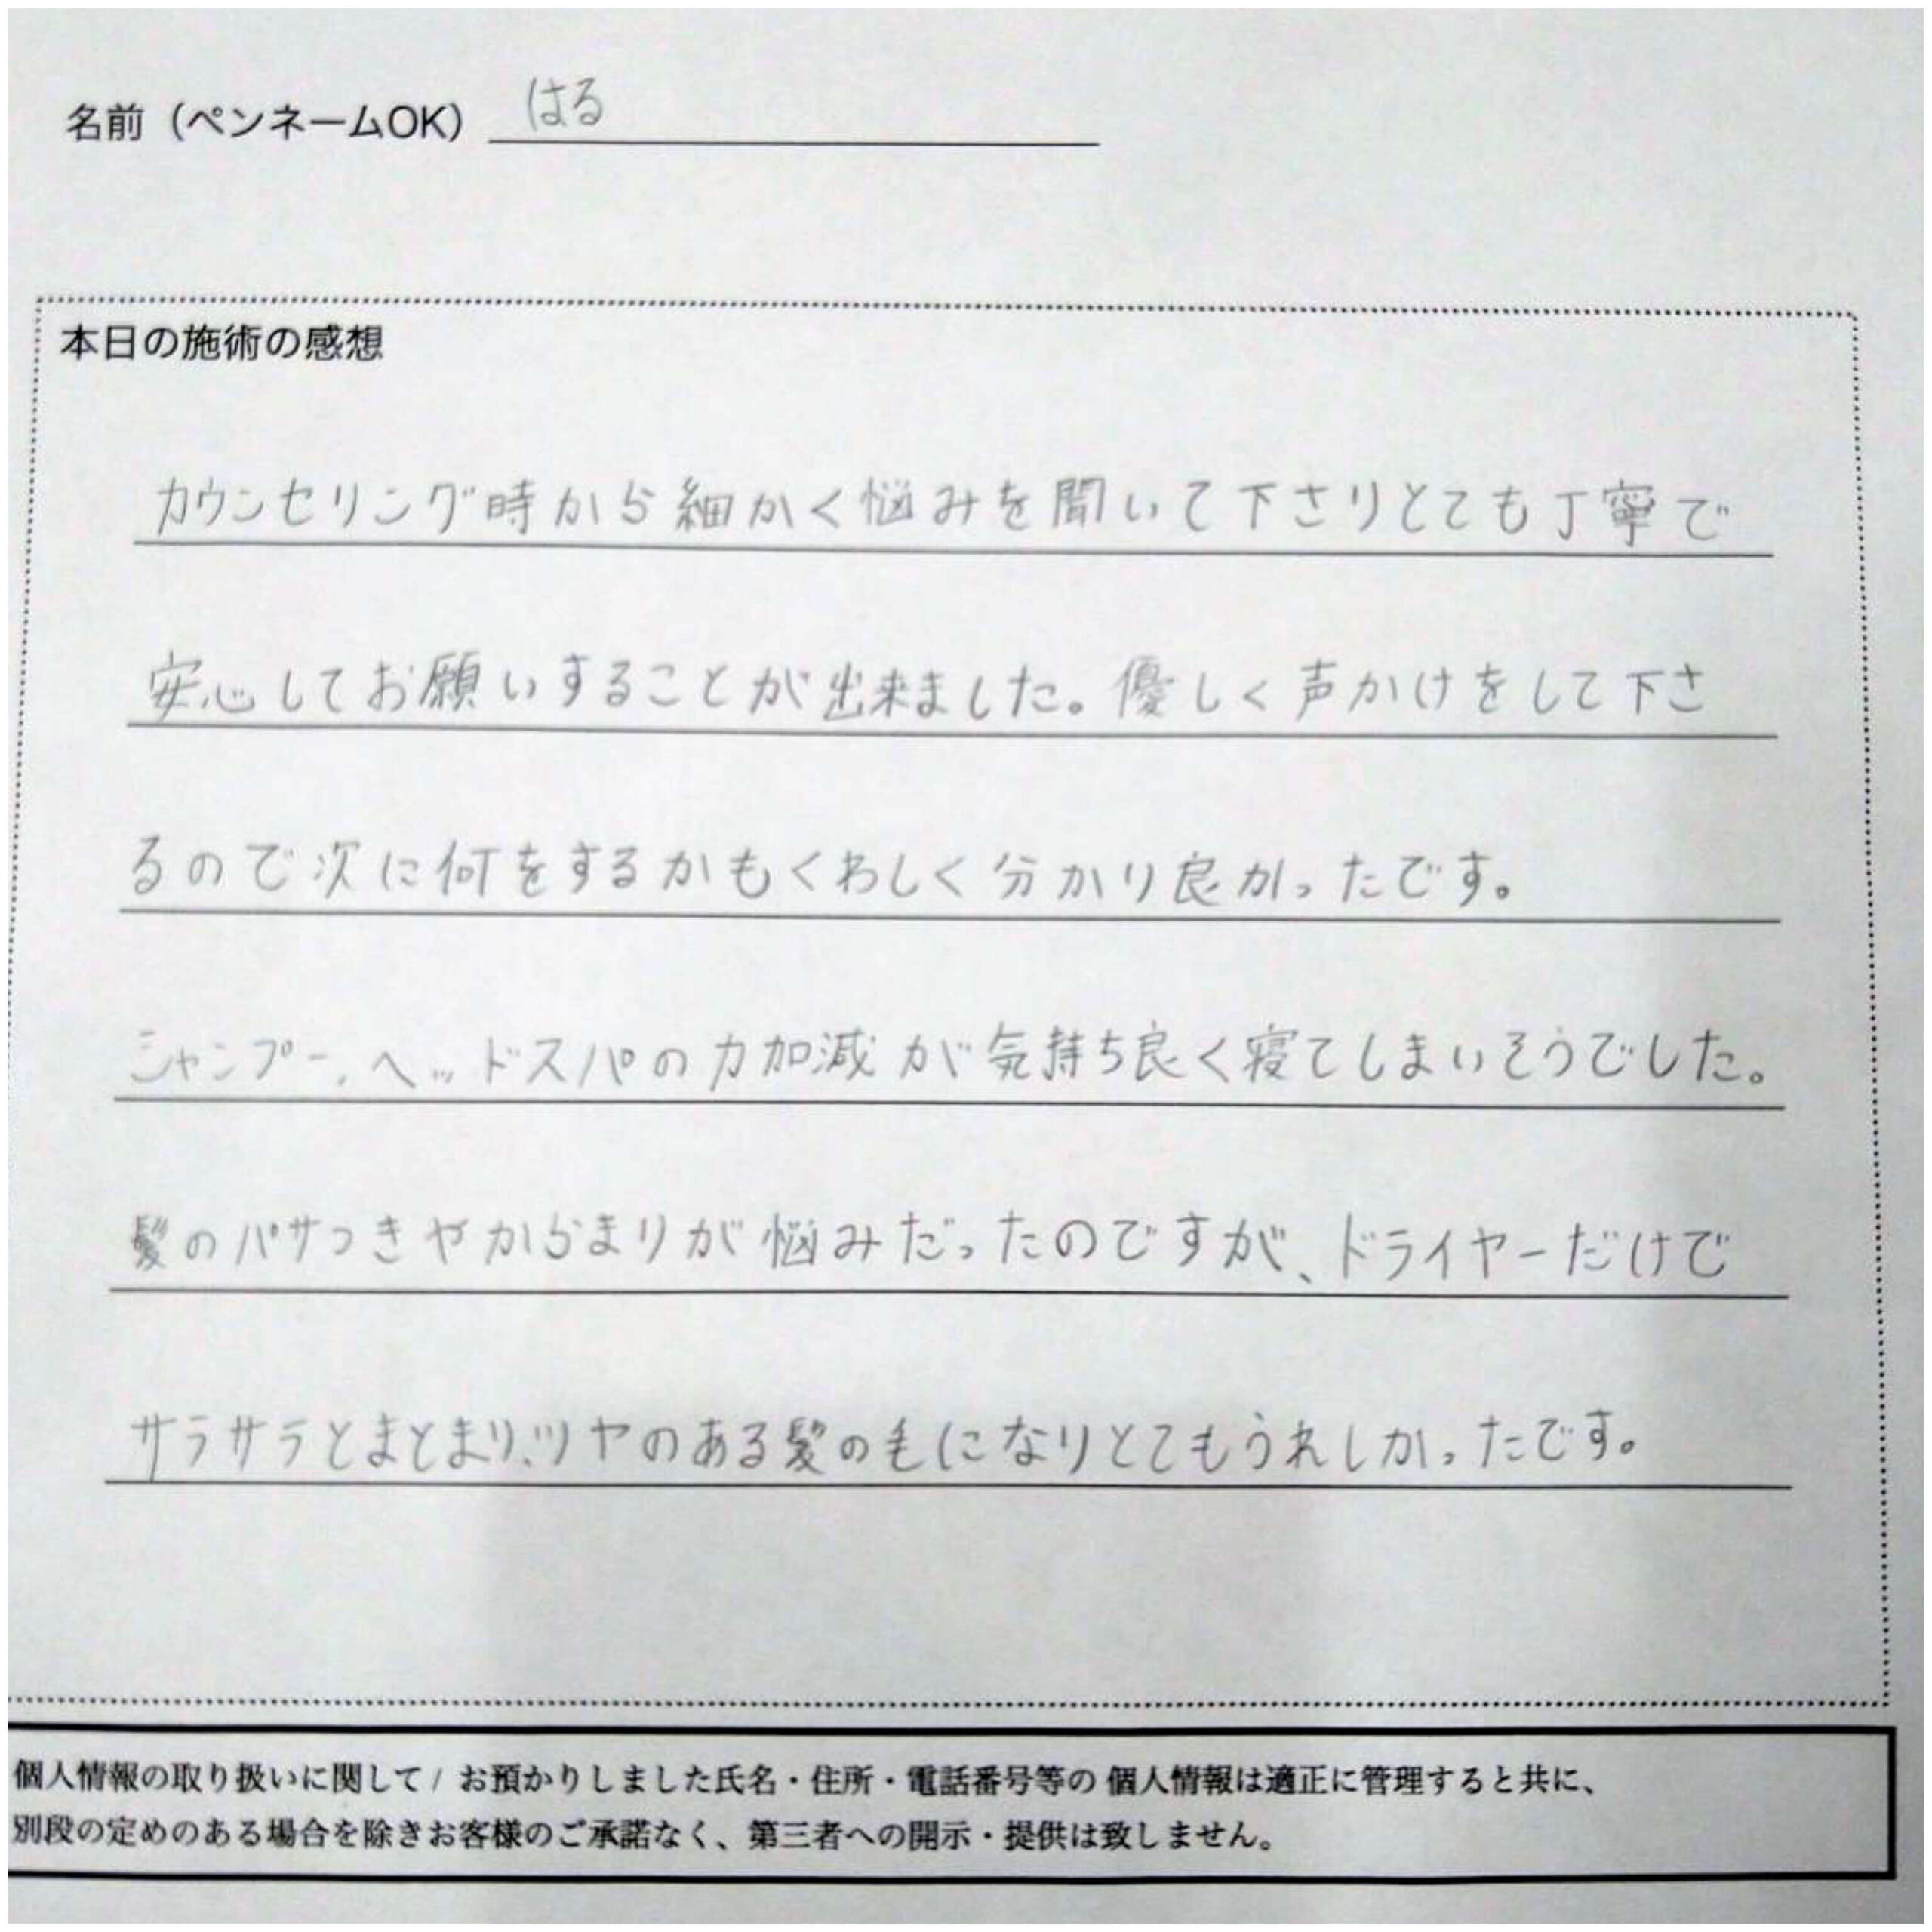 名前（ペンネームOK） はる
本日の施術の感想
カウンセリング時から細かく悩みを聞いて下さりとても丁寧で
安心してお願いすることが出来ました。優しく声かけをして下さ
るので次に何をするかもくわしく分かり良かったです。
シャンプー、ヘッドスパの力加減が気持ち良く寝てしまいそうでした。
髪のパサつきやからまりが悩みだったのですが、ドライヤーだけで
サラサラとまとまり、ツヤのある髪の毛になりとてもうれしかったです。
個人情報の取り扱いに関して / お預かりしました氏名・住所・電話番号等の 個人情報は適正に管理すると共に、
別段の定めのある場合を除きお客様のご承諾なく、第三者への開示・提供は致しません。